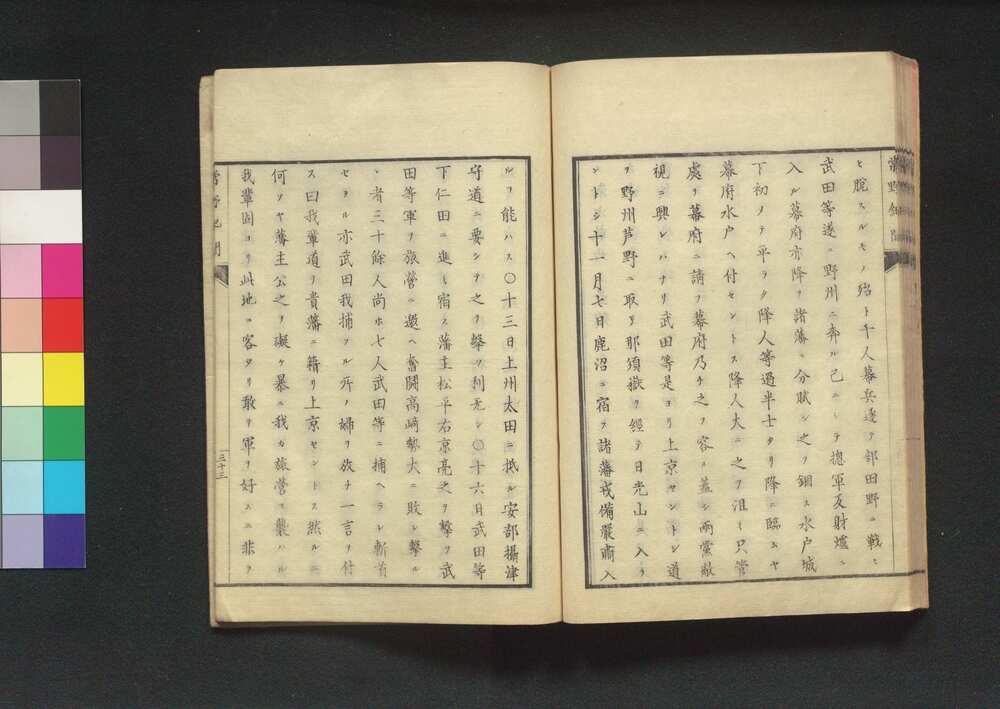 ヒ脱スルモノ殆ト千人幕兵邊テ部田野ニ戦ヒ
武田等遂ニ野州ニ奔ル已ニシテ摠軍反射爐ニ
入ル幕府亦降ヲ諸藩ニ分賦シ之ヲ錮ス水戸城
下初メテ平ラク降人等過半士タリ降ニ臨ムヤ
幕府水戸ヘ付セントス降人大ニ之ヲ沮ミ只管
處ヲ幕府ニ請フ幕府乃チ之ヲ容ル蓋シ両黨敵
視ニ興レハナリ武田等是ヨリ上京セントシ道
ヲ野州芦野ニ取リ那須嶽ヲ經テ日光山ニ入ラ
ントシ十一月七日鹿沼ニ宿ス諸藩戒備嚴肅入
ルヿ能ハス〇十三日上州太田ニ抵ル安部攝津
守道ニ要シテ之ヲ撃ツ利无シ〇十六日武田等
下仁田ニ進ミ宿ス藩主松平右京亮之ヲ撃ツ武
田等軍ヲ旅營ニ還ヘ奮闘高﨑勢大ニ敗レ撃ル
ヽ者三十餘人尚ホ七人武田等ニ捕ヘラレ斬首
セラル亦武田我捕フル所ノ婦ヲ放チ一言ヲ付
ス曰我輩道ヲ貴藩ニ籍リ上京セントス然ルニ
何ソヤ藩主公之ヲ礙ケ暴ニ我カ旅營ヲ襲ハル
我輩固ヨリ此地ニ客タリ敢テ軍ヲ好スニ非ラ
三十三